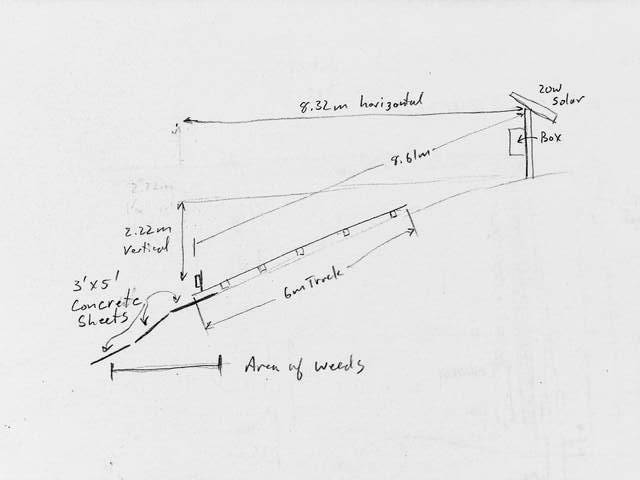 8.32m horizontal
20W
Solar
Box
8.61m
2.22m
vertical
3' x 5'
Concrete
Sheets
6m Track
Area of weeds